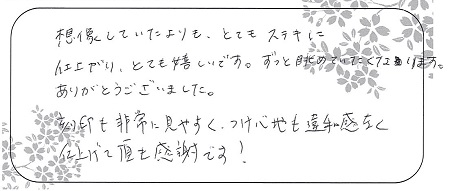 想像していたよりも、とてもステキに
仕上がり、とても嬉しいです。ずっと眺めていたくなります。
ありがとうございました。
刻印も非常に見やすく、つけ心地も違和感なく
仕上げて頂き感謝です！